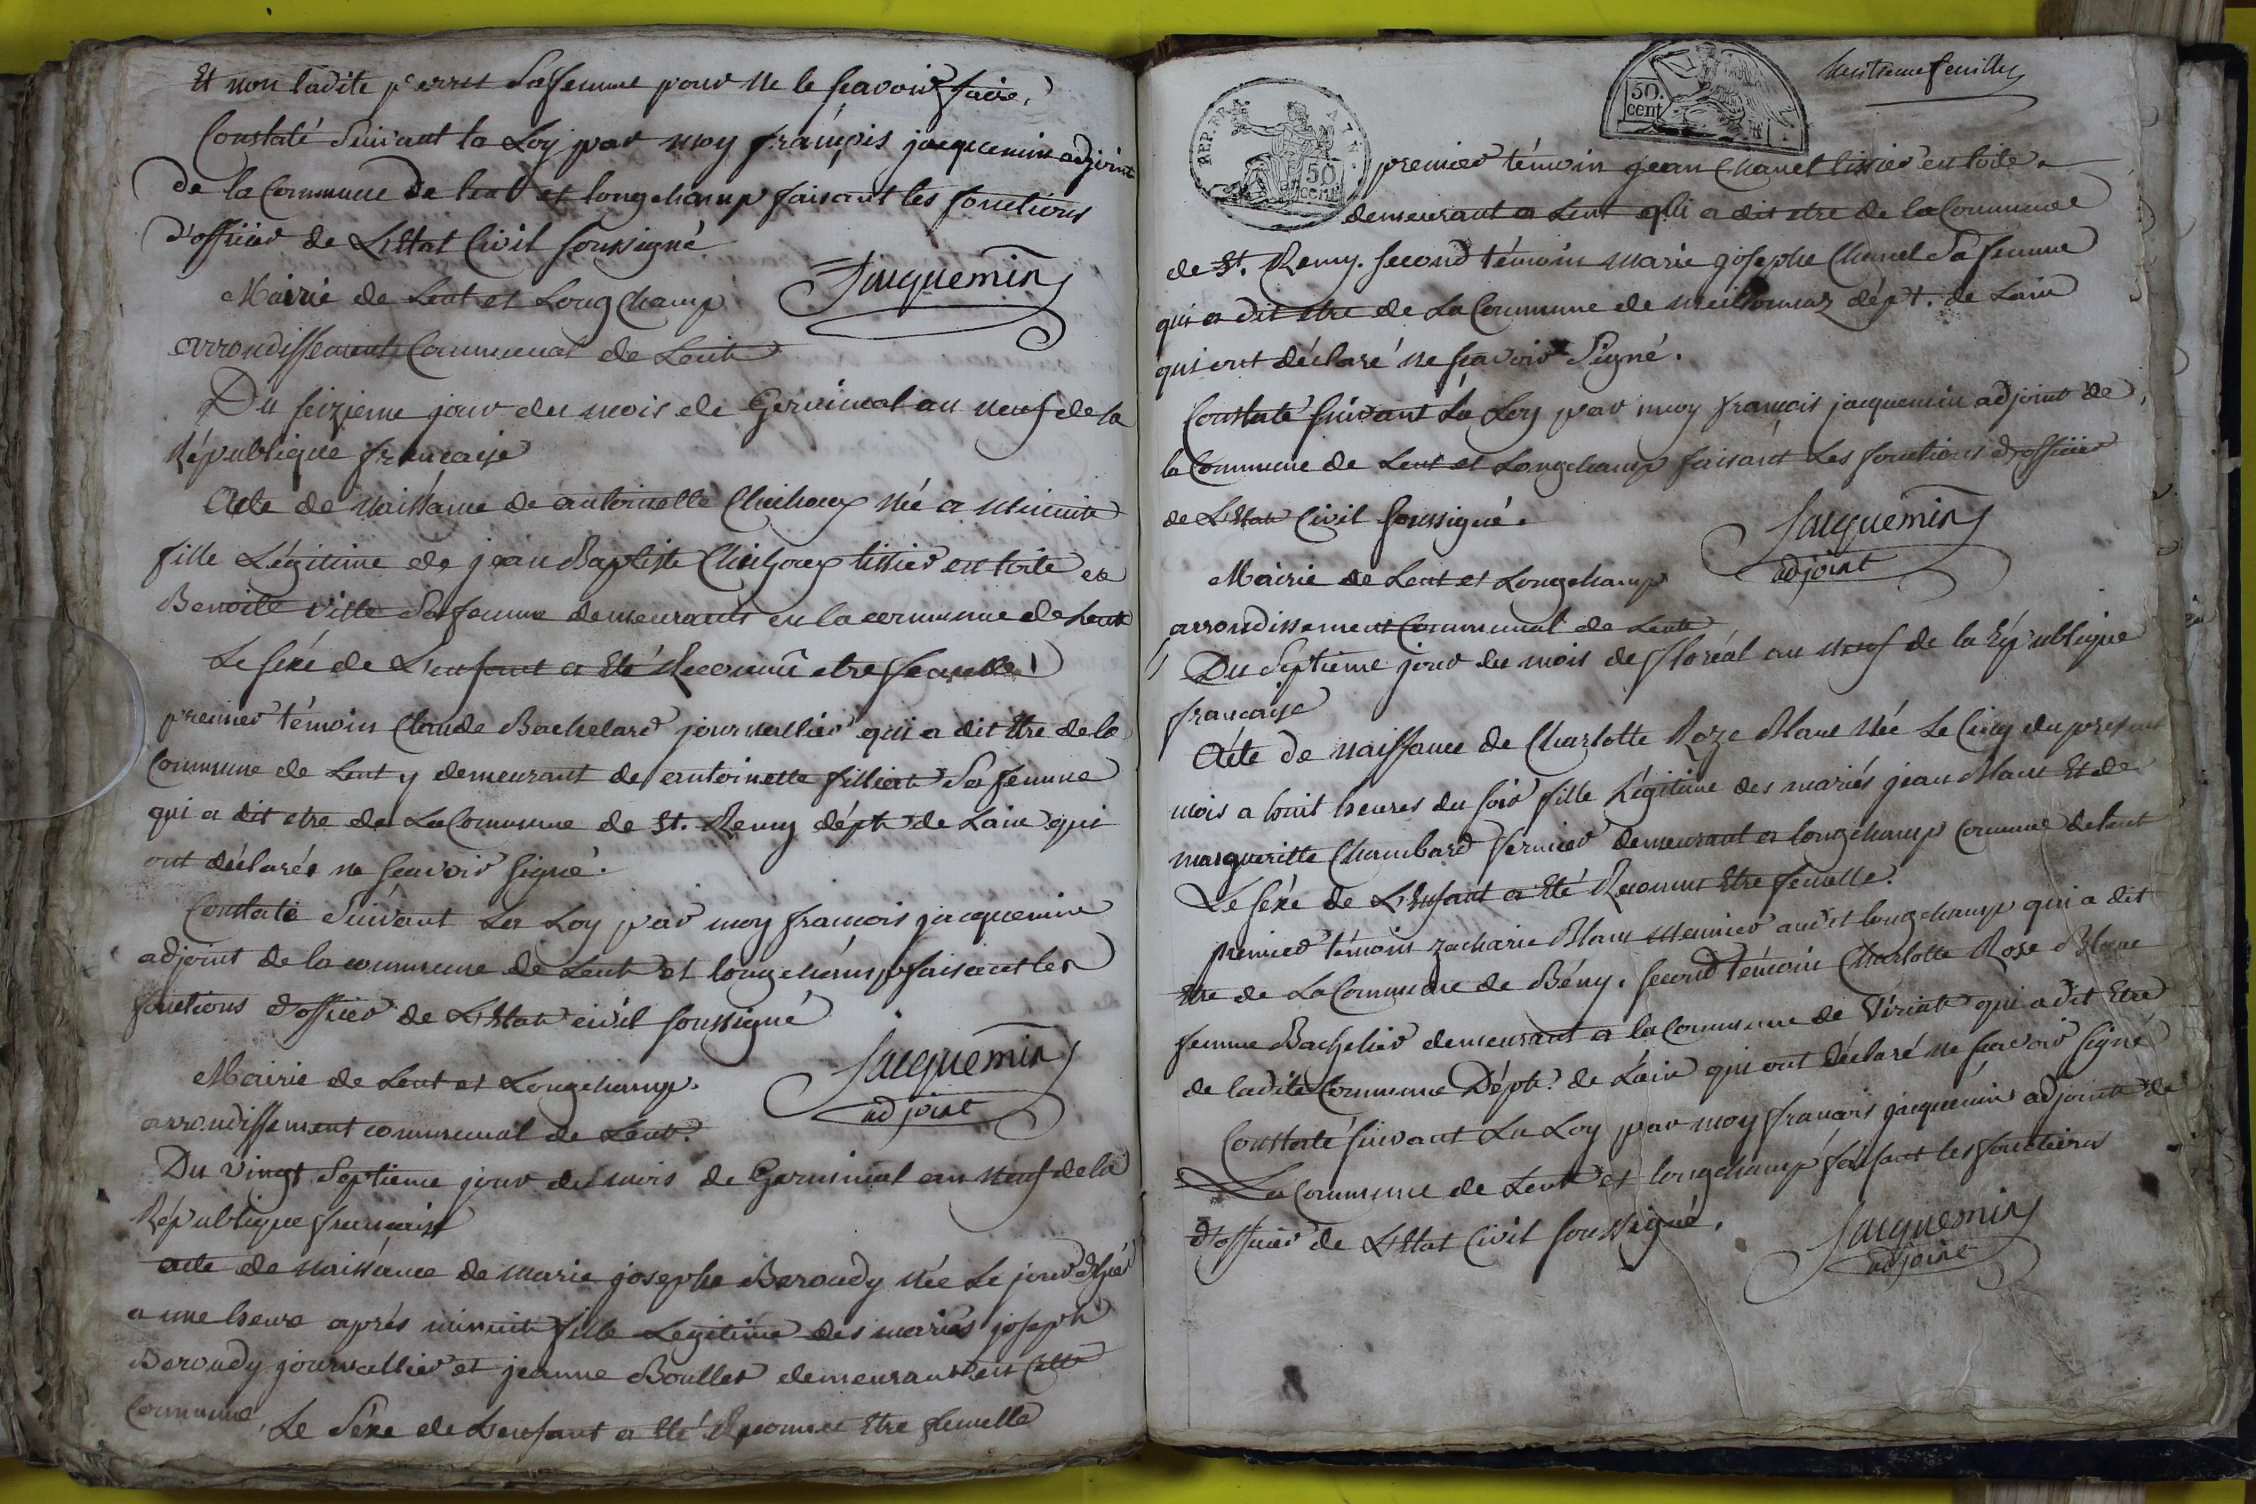 Et non ladite perret sa femme pour ne le scavoir faire,
Constaté Suivant la Loy par moy françois jacquemin adjoint
de la Commune de lent et longchamp faisant les fonctions
d'officier de L'Etat Civil soussigné
Jacquemin
Mairie de Lent et Longchamp
arrondissement Communal de Lent
Du seizieme jour du mois de Germinal an neuf de la
République française
Acte de naissance de antoinette née a minuite
fille Légitime de jean Baptiste tissier en toile et
Benoite sa femme demeurants en la commune de Lent
Le sexe de L'enfant a Eté Reconnu etre femelle
premier témoin Claude Bachelard journallier qui a dit Etre de la
Commune de Lent y demeurant de antoinette filliat Sa femme
qui a dit etre de La Commune de St. Remy dépt. de Lain qui
ont déclarés ne scavoir signé.
Constaté Suivant La Loy par moy francois jacquemin
adjoint de la commune de Lent et longchamp faisant les
fonctions d'officier de L'Etat civil soussigné
Jacquemin
adjoint
Mairie de Lent et Longchamp.
arrondissement communal de Lent.
Du vingt Septieme jour du mois de Germinal an neuf de la
République francaise
acte de naissance de marie josephe Beroudy née Le jour d'hier
a une heure aprés minuit fille Legitime des mariés joseph
Beroudy journallier et jeanne Boullet demeurants en Cette
Commune,
Le Séxe de L'enfant a Eté Reconnu Etre femelle
REP. FRA.
50
cent
50.
cent
feuillet
premier témoin jean Chanel tissier en toile
demeurant a Lent qui a dit etre de la Commune
de St. Remy. second témoin marie josephe Chanel Sa femme
qui a dit etre de La Commune de meillonnaz dépt. de Lain
qui ont déclaré ne scavoir Signé.
Constaté suivant La Loy par moy françois jacquemin adjoint de
la Commune de Lent et Longchamp faisant Les fonctions d'officier
de L'Etat Civil soussigné.
Jacquemin
adjoint
Mairie de Lent et Longchamp
arrondissement Communal de Lent
Du Septieme jour du mois de floréal an neuf de la République
francaise
Acte de naissance de Charlotte Roze Blanc née Le Cinq du present
mois a huit heures du soir fille Légitime des mariés jean Blanc Et de
margueritte Chambard fermier demeurant a longchamp Commune de Lent
Le séxe de L'Enfant a Eté Reconnu Etre femelle.
premier témoin zacharie Blanc meunier audit longchamp qui a dit
Etre de La Commune de Bény. second témoin Charlotte Rose Blanc
femme Bachelier demeurant a la Commune de Viriat qui a dit Etre
de ladite Commune Dépt. de Lain qui ont déclaré ne scavoir signé
Constaté suivant La Loy par moy francois jacquemin adjoint de
La Commune de Lent et longchamp faisant les fonctions
d'officier de L'Etat Civil soussigné,
Jacquemin
adjoint